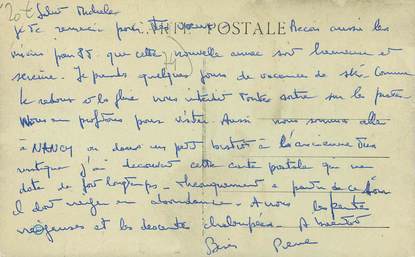 20t Salut Michele
CARTE POSTALE
Je te remercie pour tes voeux. Accou aussi les
miens pour 88. que cette nouvelle annee soit heureuse et
sereine. Je prends quelques jours de vacances de ski. Comme
le redoux et la pluie nous interdit toute sortie sur les pistes
Nous en profitons pour visiter. Aussi nous sommes allés
à NANCY ou dans un petit bistrot à l'ancienne très
rustique j'ai decouvert cette carte postale qui
date de fort longtemps - Theoriquement a partir de ce
il doit neiger en abondance. A nous les pentes
neigeuses et les descentes chaloupées. A bientôt
Bises Pierre